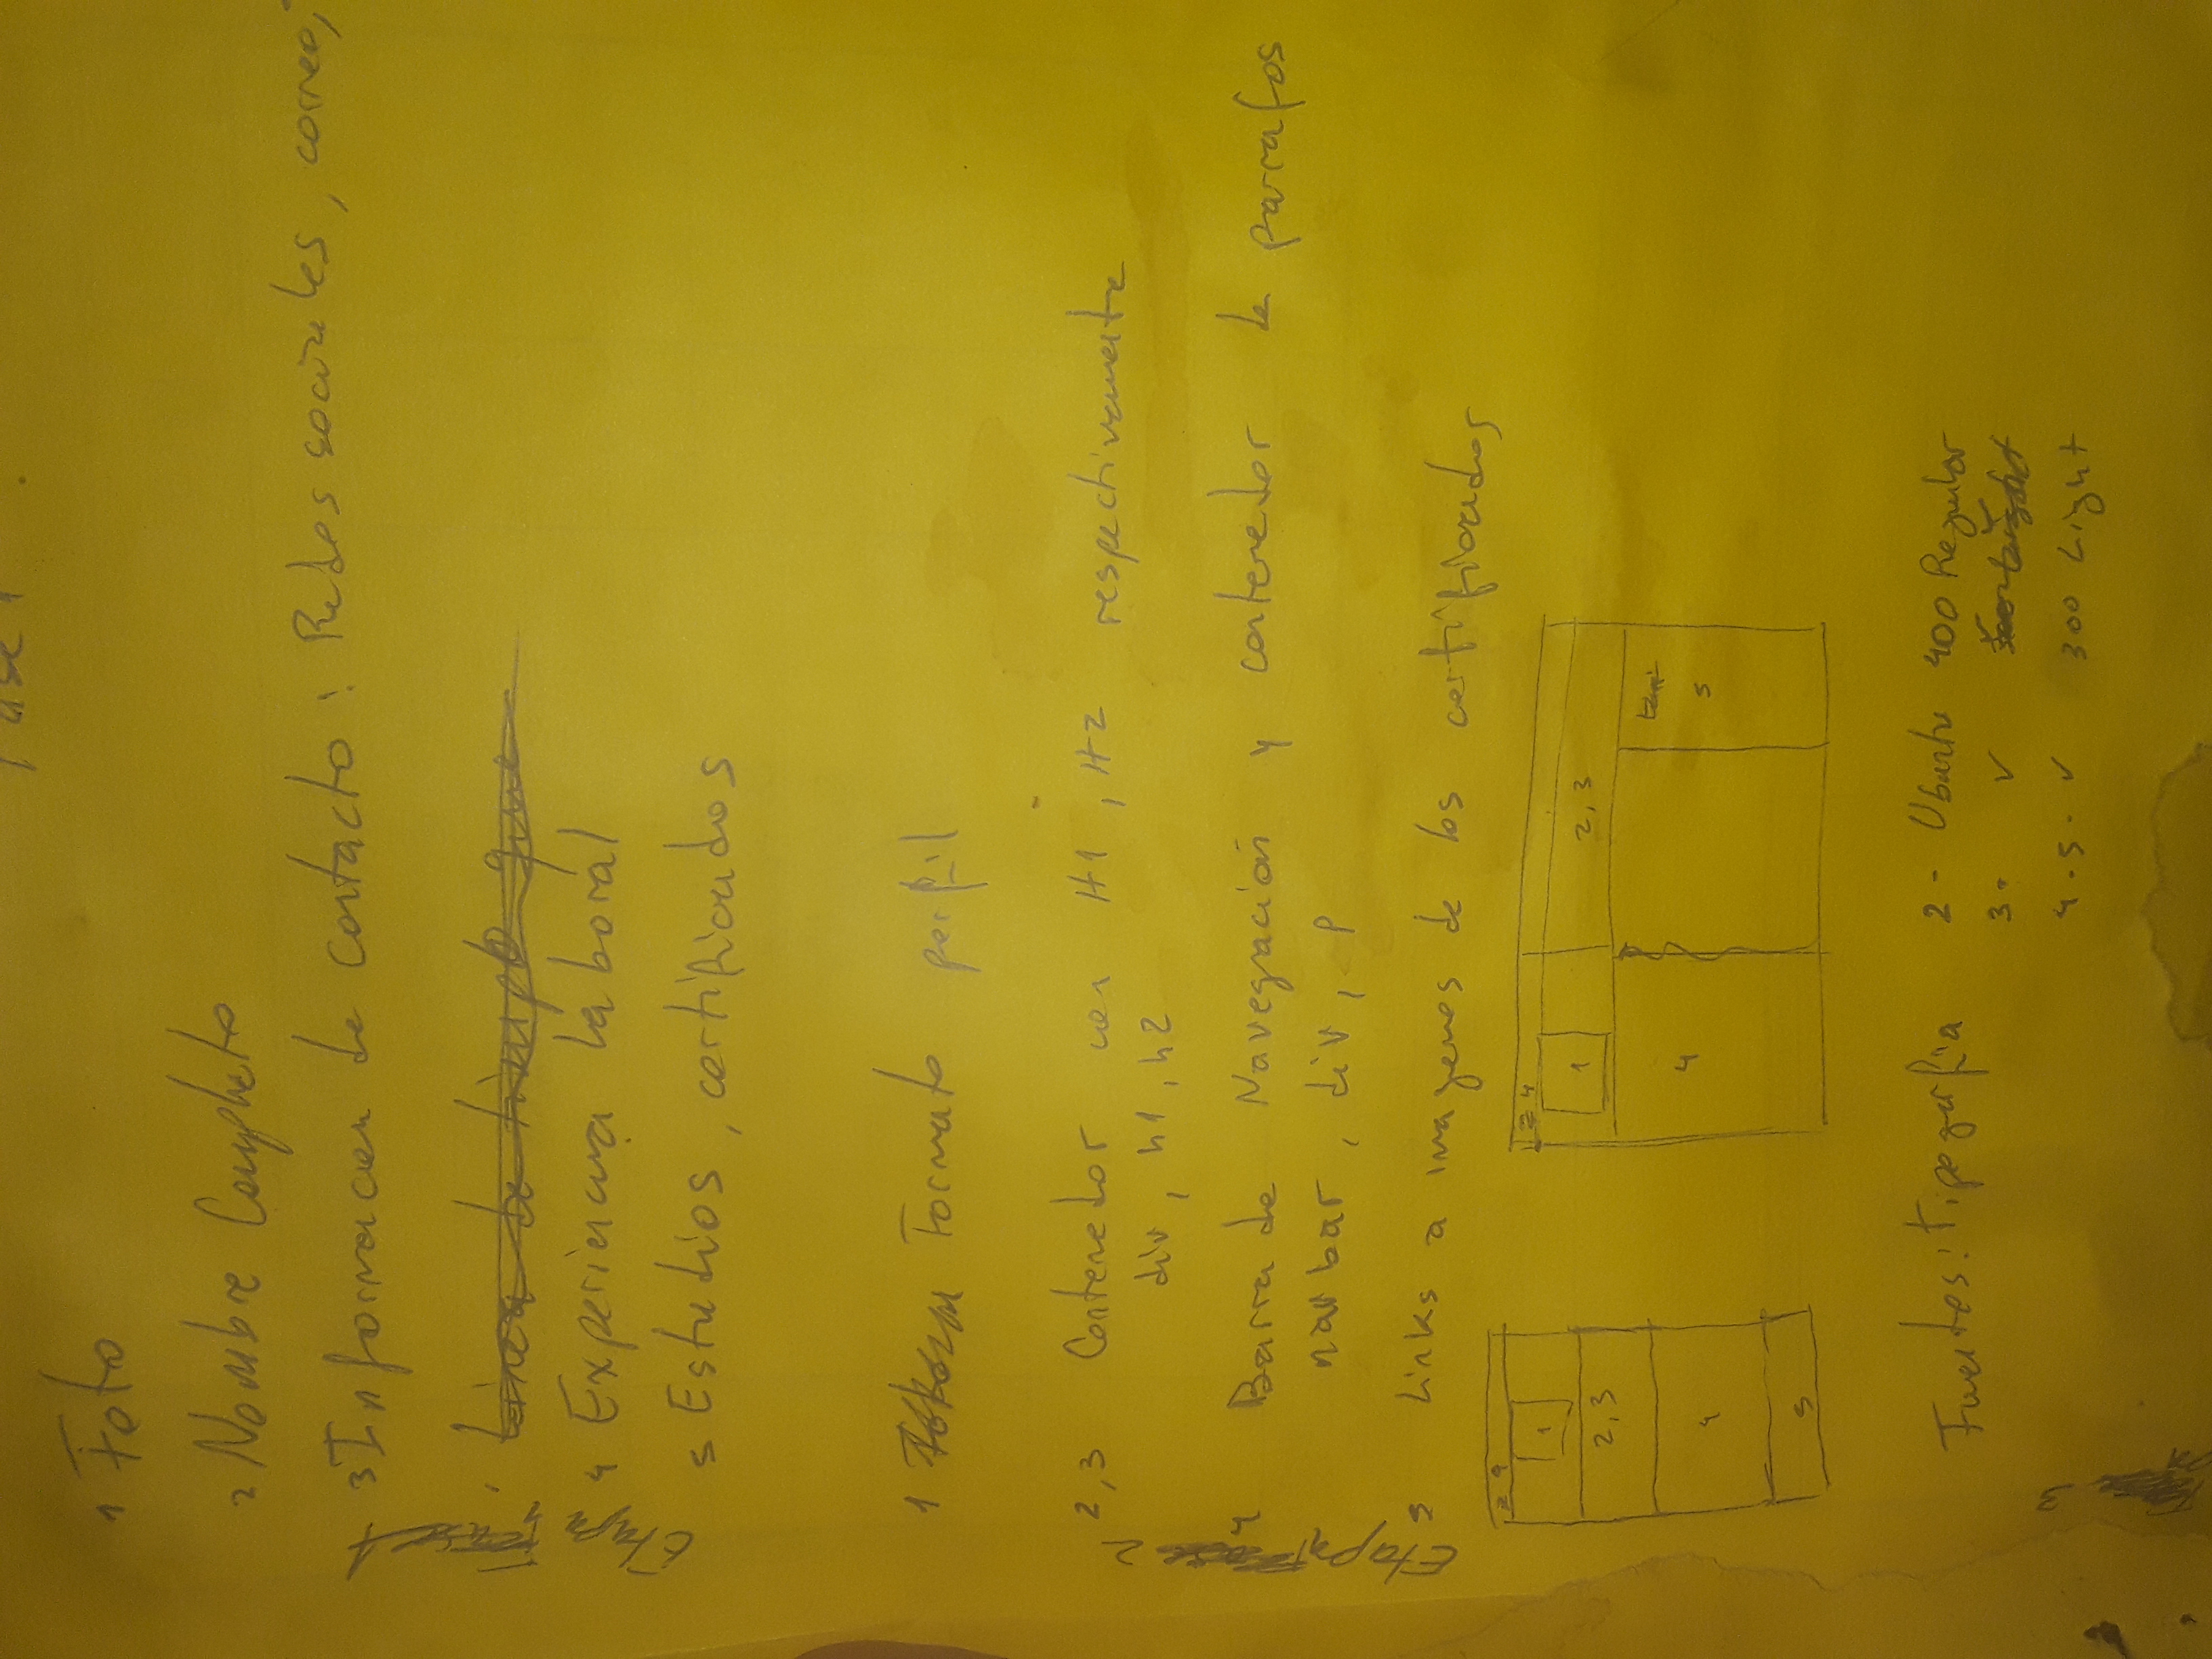 Fase 1
1 Foto
2 Nombre Completo
3 Informacion de contacto : Redes sociales, correo,
Linea de tiempo que
4 Experiencia laboral
5 Estudios, certificados
Etapa 1
1 Formato perfil
2,3 Contenedor con H1, H2 respectivamente
div, h1, h2
4 Barra de Navegación y contenedor de parrafos
navbar, div, p
5 Links a imagenes de los certificados
Etapa 2
1
2,3
4
5
1
2,3
4
5
Fuentes: tipografia
2 - Ubuntu 400 Regular
3. ✓
4.5. ✓ 300 Light
3